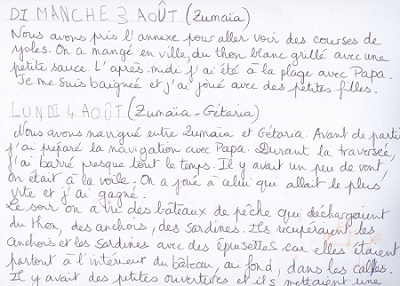 DIMANCHE 3 AOÛT (Zumaia)
Nous avons pris l'annexe pour aller voir des courses de
yoles. On a mangé en ville, du thon blanc grillé avec une
petite sauce. L'après-midi j'ai été à la plage avec Papa.
Je me suis baignée et j'ai joué avec des petites filles.
LUNDI 4 AOÛT (Zumaïa - Gétaria)
Nous avons navigué entre Zumaia et Gétaria. Avant de parti
j'ai préparé la navigation avec Papa. Durant la traversée,
j'ai barré presque tout le temps. Il y avait un peu de vent,
on était à la voile. On a joué à celui qui allait le plus
vite et j'ai gagné.
Le soir on a vu des bâteaux de pêche qui déchargeaient
du thon, des anchois, des sardines. Ils récupéraient les
anchois et les sardines avec des épuisettes car elles étaient
partout à l'intérieur du bâteau, au fond, dans les calles.
Il y avait des petites ouvertures et ils mettaient une